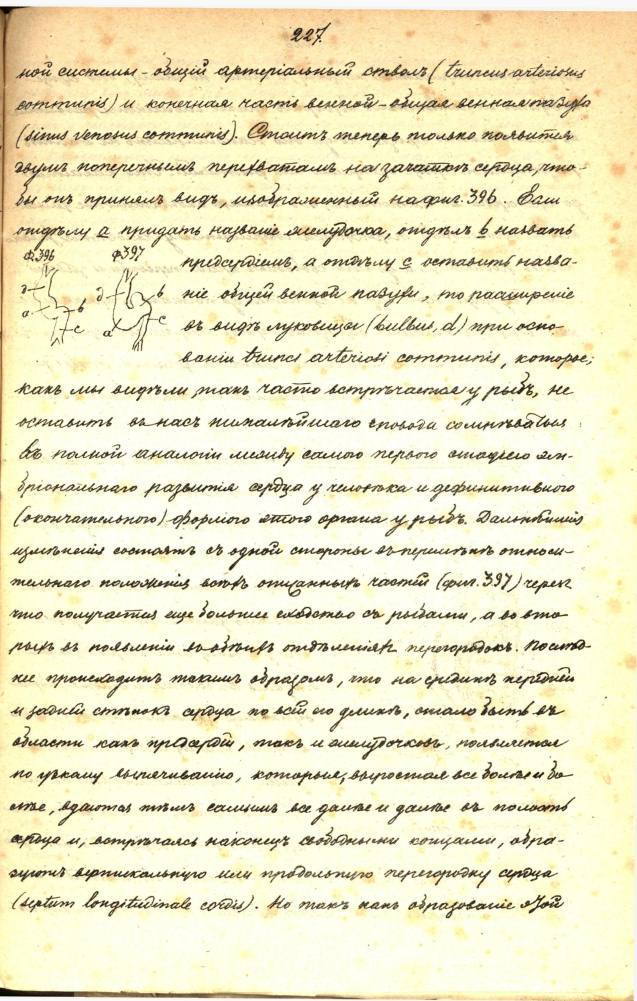 227.
ной системы – общій артеріальный стволъ (truncus arteriosus
communis) и конечная часть венной – общая венная пазуха
(sinus venosus communis). Стоитъ теперь только появиться
двумъ поперечнымъ перехватамъ на зачаткѣ сердца, что-
бы онъ принялъ видъ, изображенный на фиг. 396. Если
отдѣлу a придать названіе желудочка, отдѣлъ b назвать
Ф. 396 ф. 397
d a b c d a b c
предсердіемъ, а отдѣлу c оставить назва-
ніе общей венной пазухи, то расширеніе
въ видѣ луковицы (bulbus, d) при осно-
ваніи trunci arteriosi communis, которое,
какъ мы видѣли такъ часто встрѣчается у рыбъ, не
оставитъ въ насъ ни малѣйшаго повода сомнѣваться
въ полной аналогіи между самого первого стадіею эм-
бріональнаго развитія сердца у человѣка и дефинитивного
(окончательного) формою этого органа у рыбъ. Дальнѣйшія
измѣненія состоятъ съ одной стороны въ перемѣнѣ относи-
тельнаго положенія всѣхъ описанныхъ частей (фиг. 397) черезъ
что получается еще большее сходство съ рыбами, а во вто-
рыхъ въ появленіи въ обѣихъ отдѣленіяхъ перегородокъ. Послѣд-
нее происходитъ такимъ образомъ, что на срединѣ передней
и задней стѣнокъ сердца по всей его длинѣ, стало быть въ
области какъ предсердій, такъ и желудочковъ, появляется
по узкому выпячиванію, которыя, выростая все болѣе и бо-
лѣе, вдаются тѣмъ самымъ все далѣе и далѣе въ полость
сердца и, встрѣчаясь наконецъ свободными концами, обра-
зуютъ вертикальную или продольную перегородку сердца
(septum longitudinale cordis). Но такъ какъ образованіе этой